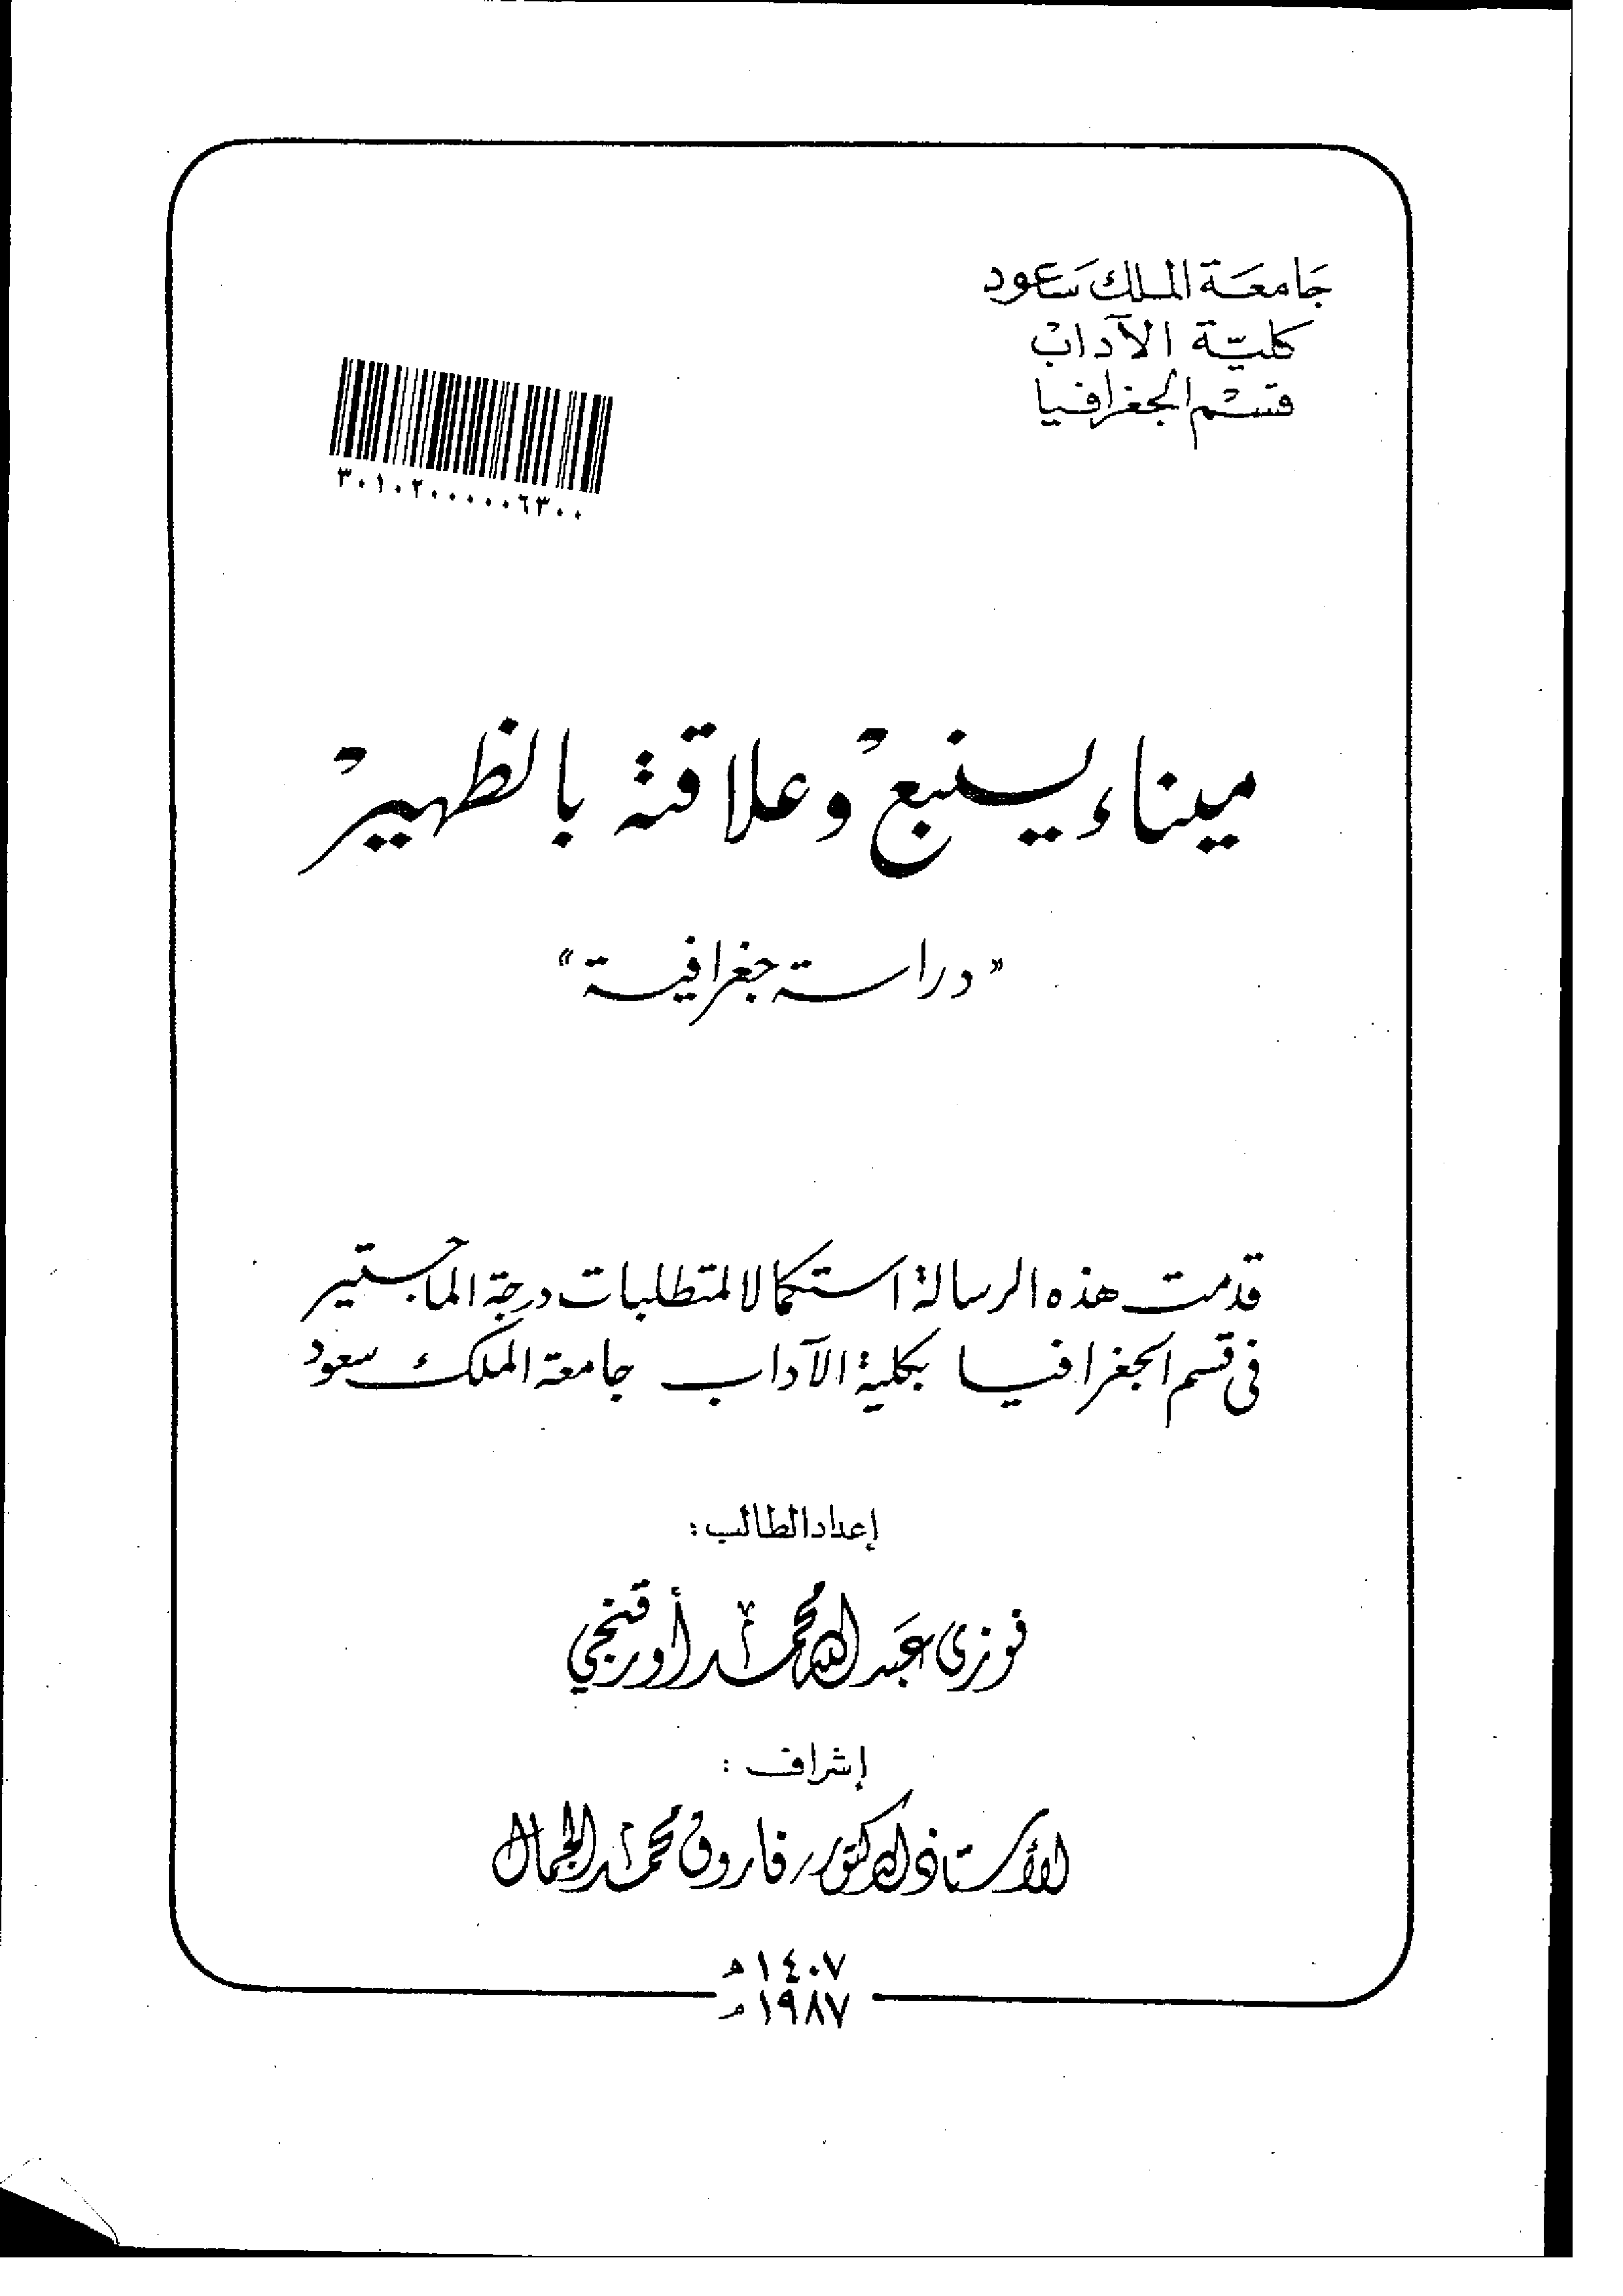 جامعة الملك سعود
كلية الآداب
قسم الجغرافيا
٣٠١٠٢٠٠٠٠٠٦٣٠٠
ميناء ينبع وعلاقته بالظهير
«دراسة جغرافية»
قدمت هذه الرسالة استكمالا لمتطلبات درجة الماجستير
في قسم الجغرافيا بكلية الآداب جامعة الملك سعود
إعداد الطالب:
فوزي عبد الله محمد أورقنجي
إشراف :
الأستاذ الدكتور/ فاروق محمد الجمال
١٤٠٧ه
١٩٨٧م